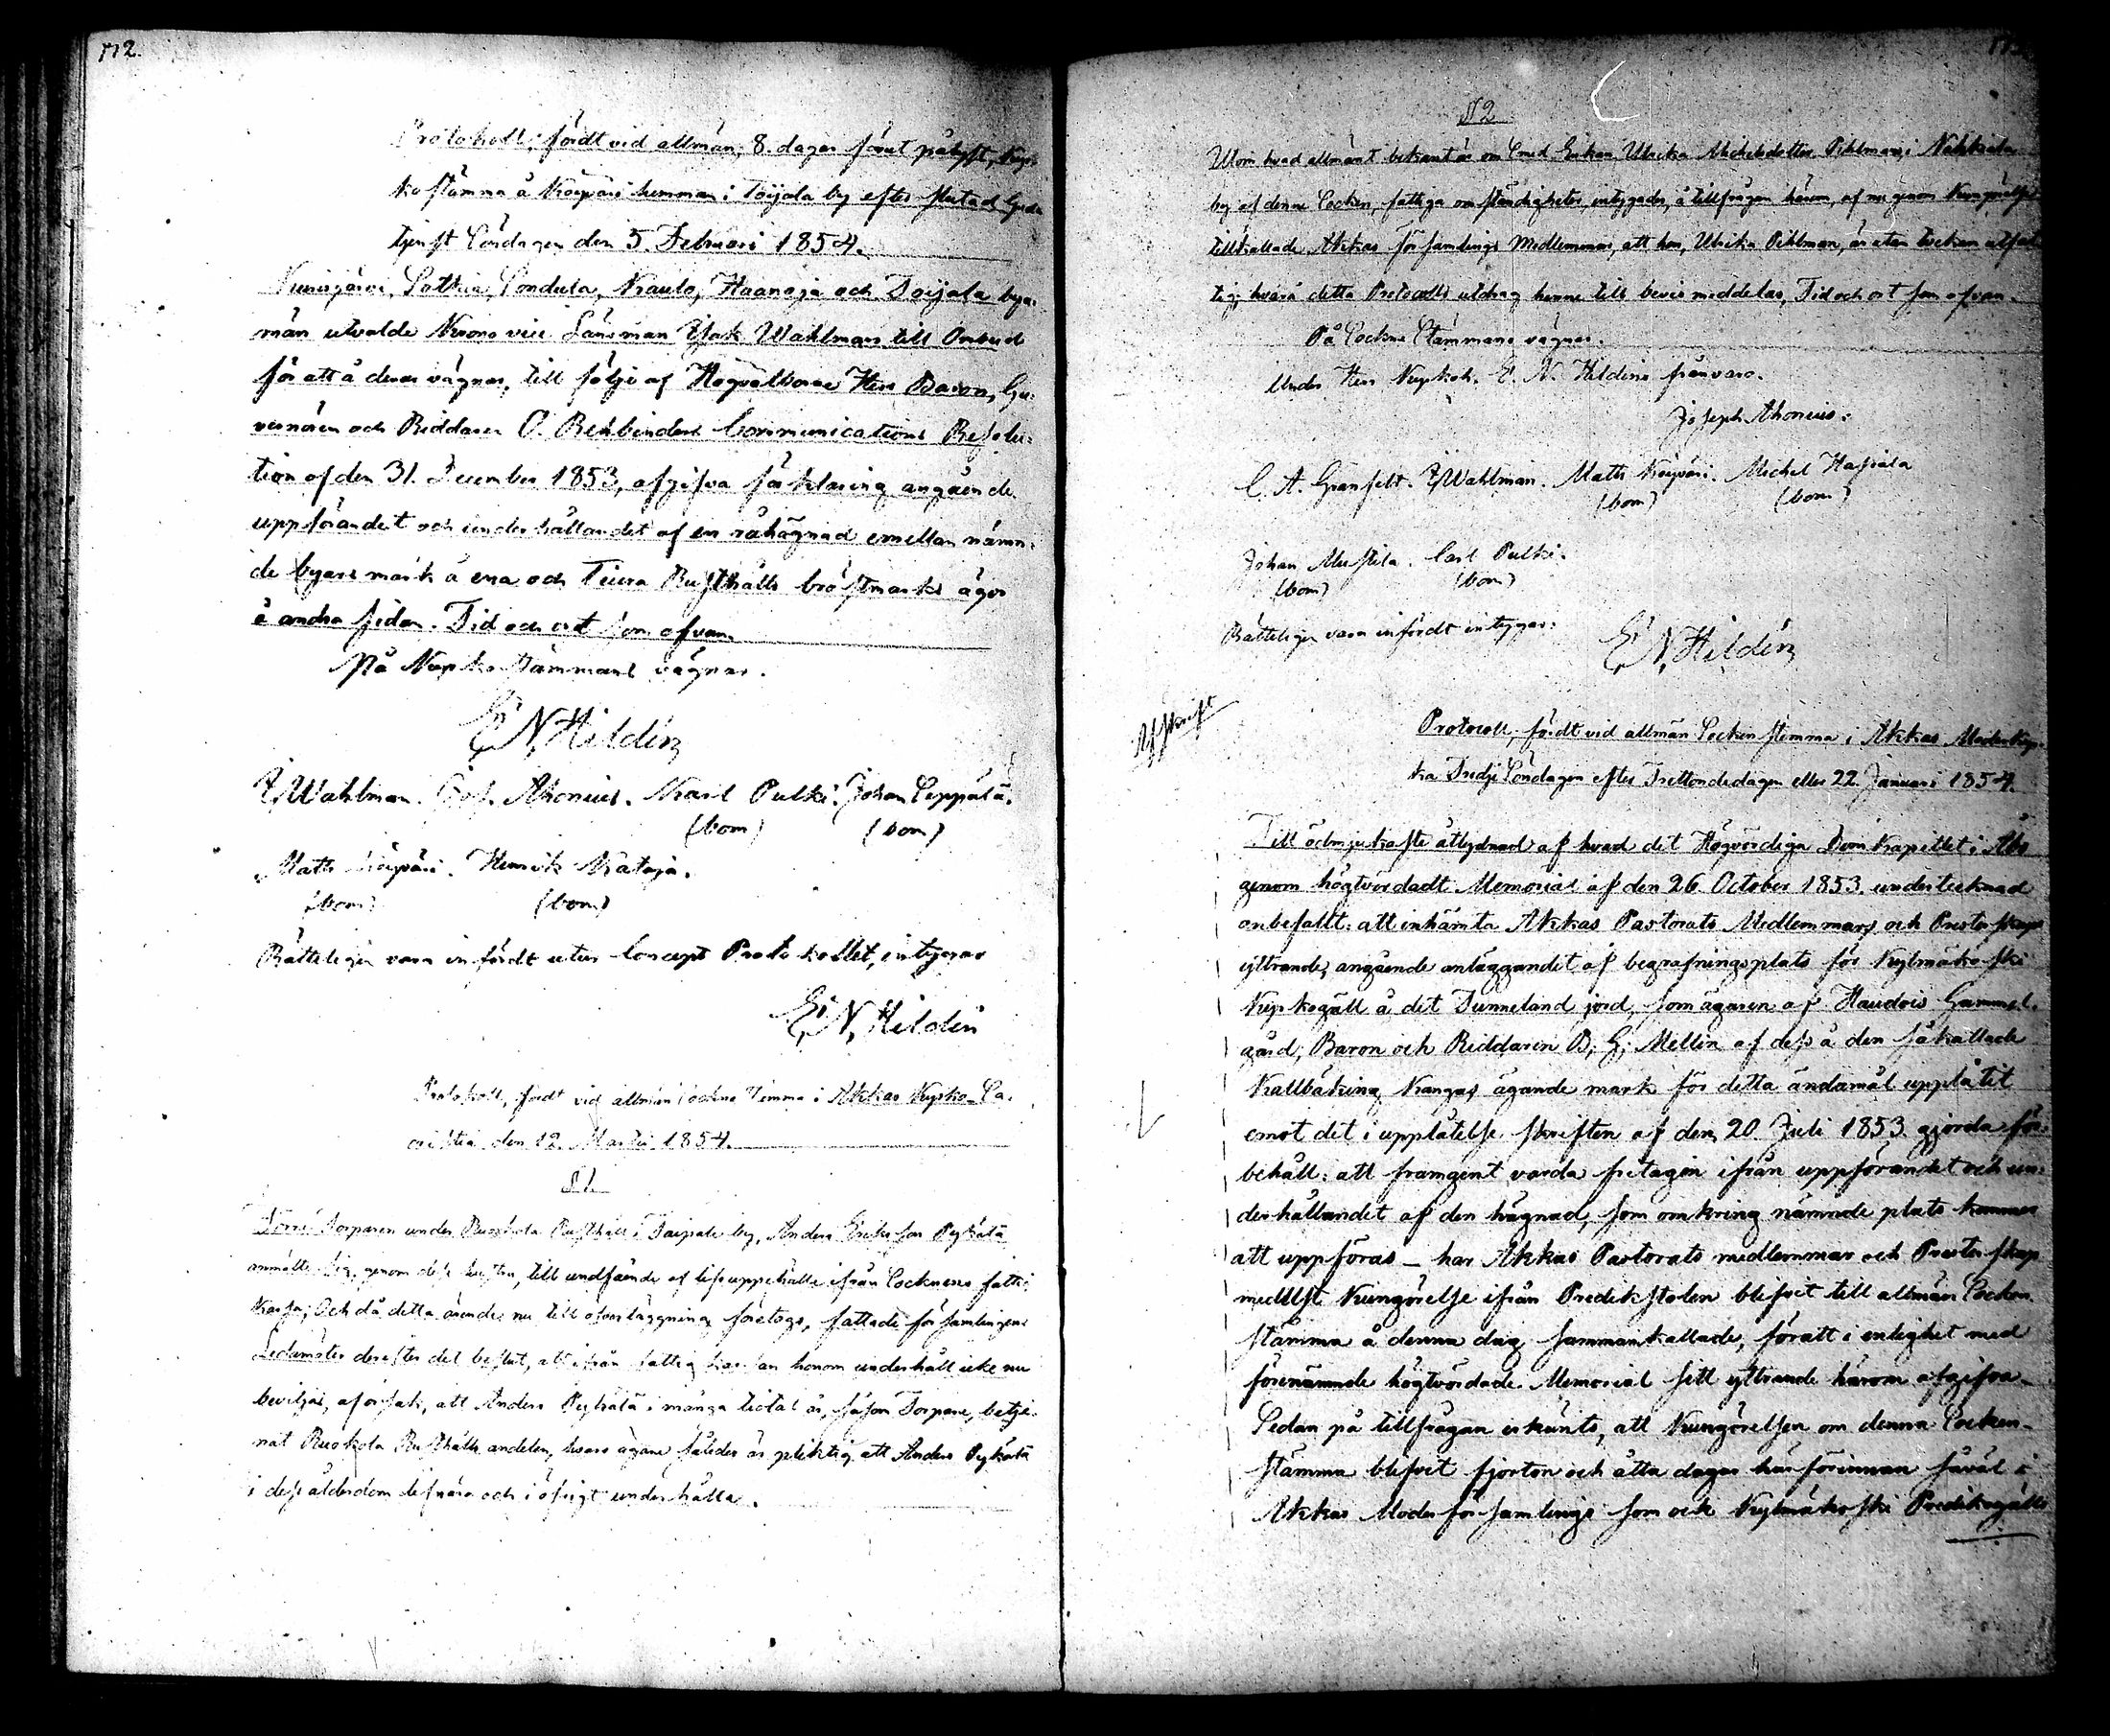 172.
Protokoll, fördt vid allmän, 8. dagar förut pålyst, Kyr-
ko stämma å Korpåri hemman i Toijala by efter slutad Guds
tjenst Söndagen den 5. Februari 1854.
Kurisjärvi, Sotkia, Sondula, Kraulo, Haanoja och Toijala bya-
män utvalde Krono vice Länsman Isak Wahlman till Ombud
för att å deras vägnar, till följe af Högvälborne Herr Baron, Gu-
vernören och Riddaren O. Rehbinders Communications Resolu-
tion af den 31. December 1853, afgifva förklaring angående
uppförandet och underhållandet af en råhägnad emellan nämn-
de byars mark å ena och Teura Rusthålls bröstmarks ägor
å andra sidan. Tid och ort som ofvan.
På Kyrko stämmans vägnar.
E. N. Hildén
I. Wahlman. Jos. Ahonius. Karl Pulki. Johan Seppälä.
(bom) (bom)
Matts Korpåri. Henrik Kataja.
(bom) (bom)
Rätteligen vara infördt utur Concept Protokollet, intygar
E. N. Hildén
Protokoll, fördt vid allmän Sockne stämma i Akkas Kyrko-Sa-
cristia den 12. Martii 1854.
§ 1.
Förre Torparen under Ruokola Rusthåll i Taipale by, Anders Eriksson Pyhätä
anmälte sig, genom dess hustru, till undfående af lifsuppehälle ifrån Socknens fatti-
kassa; Och då detta ärende nu till öfverläggning företogs, fattade församlingens
Ledamöter derefter det beslut, att ifrån fattig kassan honom underhåll icke nu
beviljas, af orsak, att Anders Pyhätä i många tiotal år, såsom Torpare, betje-
nat Ruokola Rusthålls andelen, hvars ägare således är pliktig att Anders Pyhätä
i dess ålderdom lifnära och i öfrigt underhålla.
§ 2
Utom hvad allmänt bekant är om Enkan Ulrika Michelsdotter Pihlman i Nahkiala
by af denna Socken, fattiga omständigheter, intygades, å tillfrågan härom, af nu genom Kungörelse
tillkallade Akkas församlings Medlemmar, att hon, Ulrika Pihlman, är utan tvekan utfat-
tig; hvarå detta Protocolls utdrag henne till bevis meddelas, Tid och ort som ofvan.
På Sockne Stämmans vägnar.
Under Herr Kyrkoh. E. N. Hildéns frånvaro.
Joseph Ahonius.
C. A. Granfelt. I. Wahlman. Matts Korpåri. Michel Hapiala
(bom) (bom)
Johan Mustila. Carl Pulki.
(bom) (bom)
Rätteligen vara infördt intygar:
E. N. Hildén
Afskrift
Protocoll, fördt vid allmän Socken stemma i Akkas Moderkyr-
ka Tredje Söndagen efter Trettondedagen eller 22. Januari 1854.
Till ödmjukaste åtlydnad af hvad det Högvördiga Dom Kapitlet i Åbo
genom högtvördadt Memorial af den 26. October 1853. undertecknad
anbefallt: att inhämta Akkas Pastorats Medlemmars och Presterskaps
yttrande, angående anläggandet af begrafningsplats för Kylmäkoski
Kyrkogäll å det Tunneland jord, som ägaren af Haudois Gammel-
gård, Baron och Riddaren B. G. Mellin af dess å den så kallade
Kallbäking Kangas ägande mark för detta ändamål upplåtit
emot det i upplåtelse skriften af den 20. Juli 1853 gjorda för-
behåll: att framgent varda fritagen ifrån uppförandet och un-
derhållandet af den hägnad, som omkring nämnde plats kommer
att uppföras — har Akkas Pastorats medlemmar och Presterskap
medelst Kungörelse ifrån Predikstolen blifvit till allmän Socken
stämma å denna dag sammankallade, för att i enlighet med
förenämnde högtvördade Memorial sitt yttrande härom afgifva.
Sedan på tillfrågan erkänts, att Kungörelsen om denna Socken-
stämma blifvit fjorton och åtta dagar härförinnan såväl i
Akkas Moder församlings som ock Kylmäkoski Predikogälls